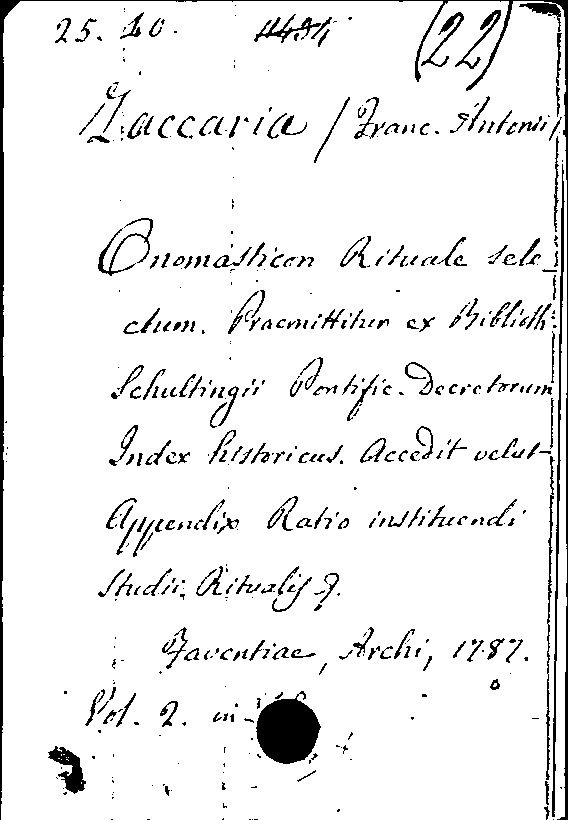 25. 40. (22)
Zaccaria / Franc. Antonii /
Onomasticon Rituale sele_
ctum. Praemittitur ex Biblioth.
Schultingii Pontific. Decretorum
Index historicus. Accedit velut
Appendix Ratio instituendi
Studii Ritualis
Faventiae, Archi, 1787.
Vol. 2. in